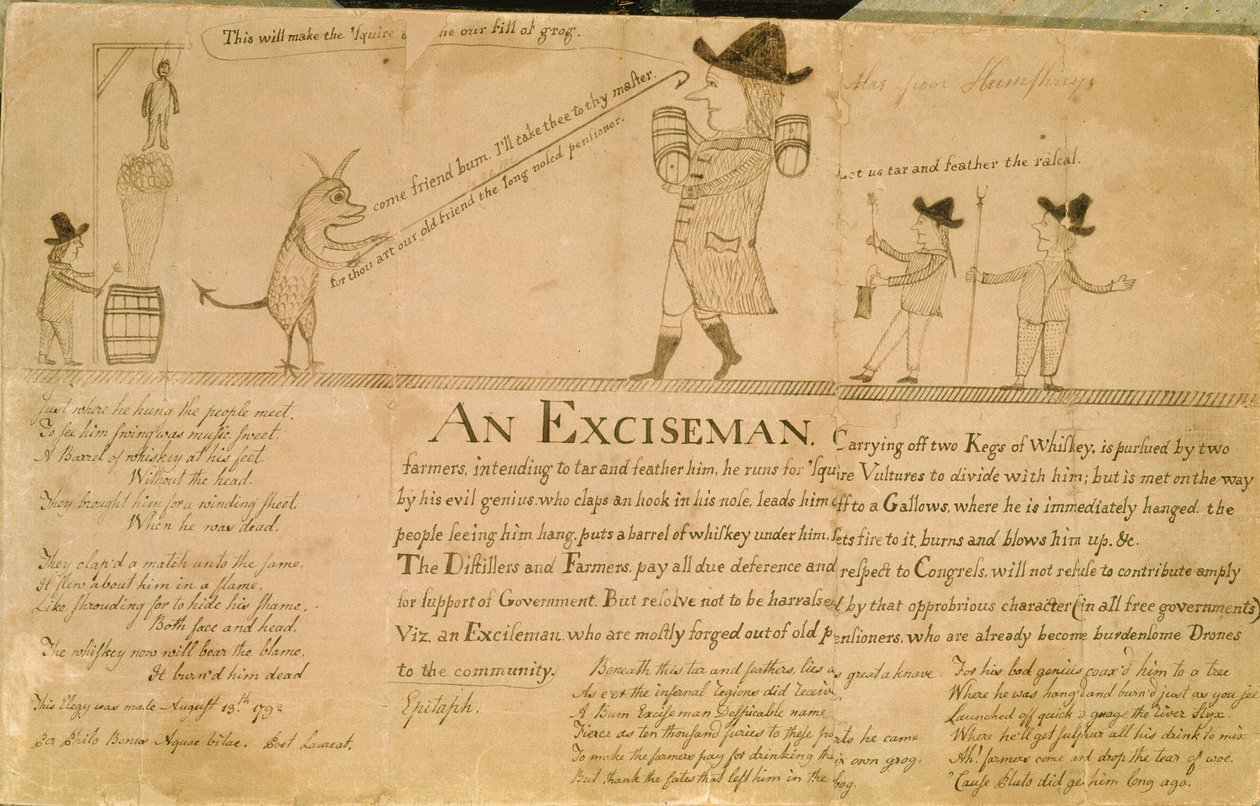 This will make the 'Squire our fill of grog.
Alas poor Humphrey,
come friend bum. I'll take thee to thy maſter.
for thou art our old friend the long noſed penſioner.
Let us tar and feather the raſcal.
Juſt where he hung the people meet.
To ſee him ſwing was muſic ſweet.
A Barrel of whiskey at his feet.
Without the head.
They brought him for a winding ſheet.
When he was dead.
They clap'd a match unto the ſame,
It flew about him in a flame,
Like ſhrouding for to hide his ſhame,
Both face and head.
The whiſkey now will bear the blame,
It burn'd him dead.
This Elegy was made Auguſt 13th 1792
Per Philo Bonus Aquae vitae. Poet Laureat.
AN EXCISEMAN, Carrying off two Kegs of Whiſkey, is purſued by two
farmers, intending to tar and feather him, he runs for 'Squire Vultures to divide with him; but is met on the way
by his evil genius, who claps an hook in his noſe, leads him off to a Gallows, where he is immediately hanged, the
people ſeeing him hang, puts a barrel of whiſkey under him, ſets fire to it, burns and blows him up. &c.
The Diſtillers and Farmers, pay all due deference and reſpect to Congreſs, will not refuſe to contribute amply
for ſupport of Government. But reſolve not to be harraſsed by that opprobrious character (in all free governments)
Viz. an Exciſeman, who are moſtly forged out of old penſioners, who are already become burdenſome Drones
to the community.
Epitaph.
Beneath this tar and feathers, lies as great a knave
As e'er the infernal legions did receive
A Bum Exciſeman deſpicable name,
Fierce as ten thouſand furies to theſe ports he came
To make the farmers pay for drinking their own grog.
But thank the fates that left him in the bog.
For his bad genius coax'd him to a tree
Where he was hang'd and burn'd juſt as you ſee
Launched off quick guage the river Styx.
Where he'll get ſulphur all his drink to mix
Ah! farmers come and drop the tear of woe.
'Cauſe Pluto did get him long ago.